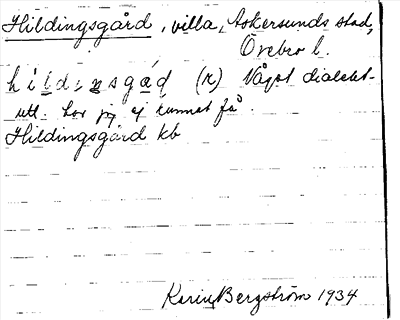 Hildingsgård, villa, Askersunds stad,
Örebro l.
hildiŋsgad (r) Något dialekt-
utt. har jag ej kunnat få.
Hildingsgård kb
Karin Bergström 1934